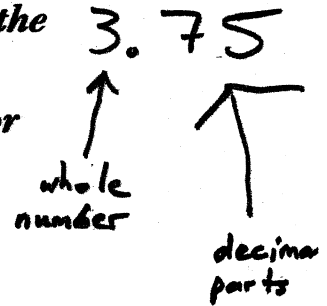 the
3.75
or
whole
number
decima
parts